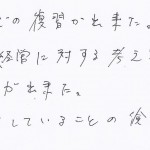 どの復習が出来た。
経営に対する考え
が出来た。
していることの